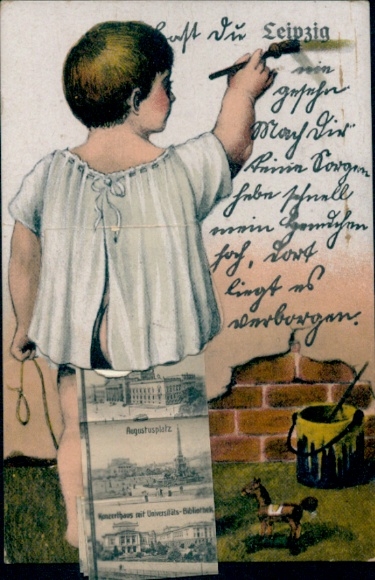 Hast du Leipzig
nie
gesehn
Mach Dir
keine Sorgen
hebe schnell
mein Hemdchen
hoch, dort
liegt es
verborgen.
Augustusplatz.
Konzerthaus mit Universitäts-Bibliothek.